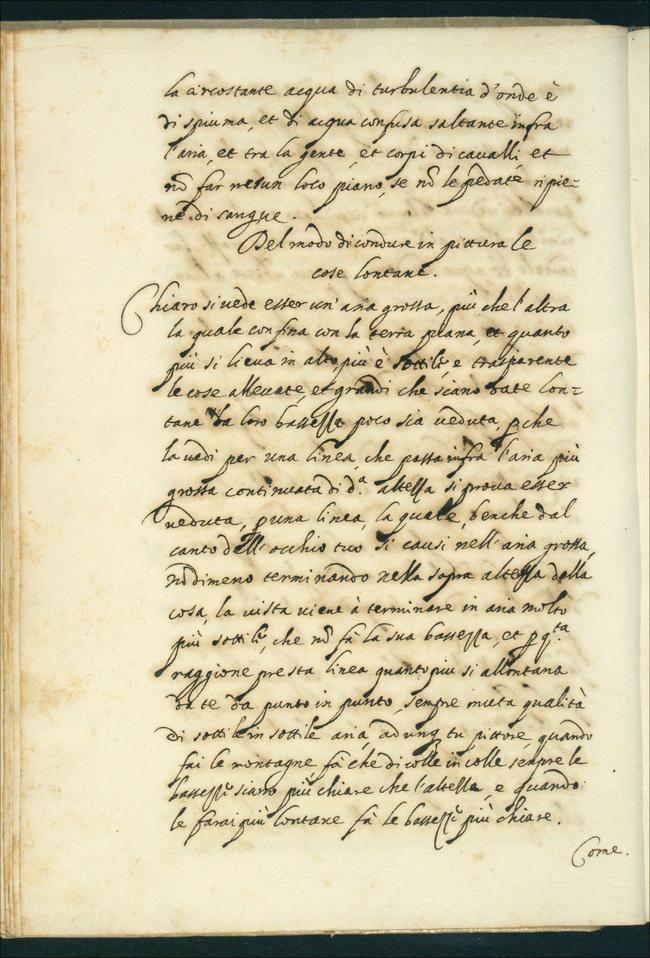 la circostante acqua di turbulentia d'onde è
di spiuma, et di acqua confusa saltante infra
l'aria, et tra la gente, et corpi di cavalli et
nõ far nesun loco piano, se nõ le pedate ripie=
ne di sangue.
Del modo di condure in pittura le
cose lontane.
Chiaro si vede esser un' aria grossa, più che l'altra
la quale confina con la terra piana, et quanto
più si lieva in alto, più è sottile, e trasparente
le cose allevate, et grandi che siano da te lon=
tane da loro bassezza poco sia veduta, pche
la vedi per una linea, che passa infra l'aria più
grossa continuata di d.ª altezza si prova esser
veduta, p una linea, la quale, benche dal
canto dell'occhio tuo si causi nell'aria grossa,
nõdimeno terminando nella sopra altezza della
cosa, la vista viene à terminare in aria molto
più sottile, che nõ fà la sua bassezza, et p q.ta
raggione presta linea quanto piu si allontana
da te da punto in punto, sempre muta qualità
di sottile in sottile aria, adunq tu pittore, quando
fai le montagne fà che di colle in colle sempre le
bassezze siano più chiare che l'altezze, e quando
le farai più lontane fà le bassezze più chiare.
Come.